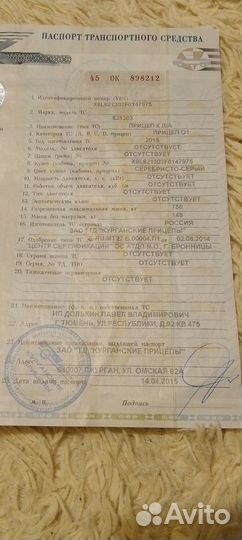 ПАСПОРТ ТРАНСПОРТНОГО СРЕДСТВА
45 ОК 898212
1. Идентификационный номер (VIN) X8L821303F0147975
2. Марка, модель ТС 821303
3. Наименование (тип ТС) ПРИЦЕП К Л/А
4. Категория ТС (А, В, С, D, прицеп) ПРИЦЕП О1
5. Год изготовления ТС 2015
6. Модель, № двигателя ОТСУТСТВУЕТ
7. Шасси (рама) № ОТСУТСТВУЕТ
8. Кузов (кабина, прицеп) № X8L821303F0147975
9. Цвет кузова (кабины, прицепа) СЕРЕБРИСТО-СЕРЫЙ
10. Мощность двигателя, л. с. (кВт) ОТСУТСТВУЕТ
11. Рабочий объем двигателя, куб. см ОТСУТСТВУЕТ
12. Тип двигателя ОТСУТСТВУЕТ
13. Экологический класс ОТСУТСТВУЕТ
14. Разрешенная максимальная масса, кг 750
15. Масса без нагрузки, кг 145
РОССИЯ
ЗАО ТД "КУРГАНСКИЕ ПРИЦЕПЫ"
17. Одобрение типа ТС № 02.06.2014
"ЦЕНТР СЕРТИФИКАЦИИ" Г. БРОННИЦЫ
18. Страна вывоза ТС ОТСУТСТВУЕТ
19. Серия, № ТД, ТПО ОТСУТСТВУЕТ
20. Таможенные ограничения ОТСУТСТВУЕТ
21. Наименование (ф. и. о.) собственника ТС
ИП ДОЛЬКИН ПАВЕЛ ВЛАДИМИРОВИЧ
22. Адрес Г.ТЮМЕНЬ, УЛ.РЕСПУБЛИКИ, Д.92 КВ.475
23. Наименование организации, выдавшей паспорт
ЗАО "ТД "КУРГАНСКИЕ ПРИЦЕПЫ"
24. Адрес 640007 Г.КУРГАН, УЛ. ОМСКАЯ 82А
25. Дата выдачи паспорта 14.04.2015
М. П. Подпись
Avito